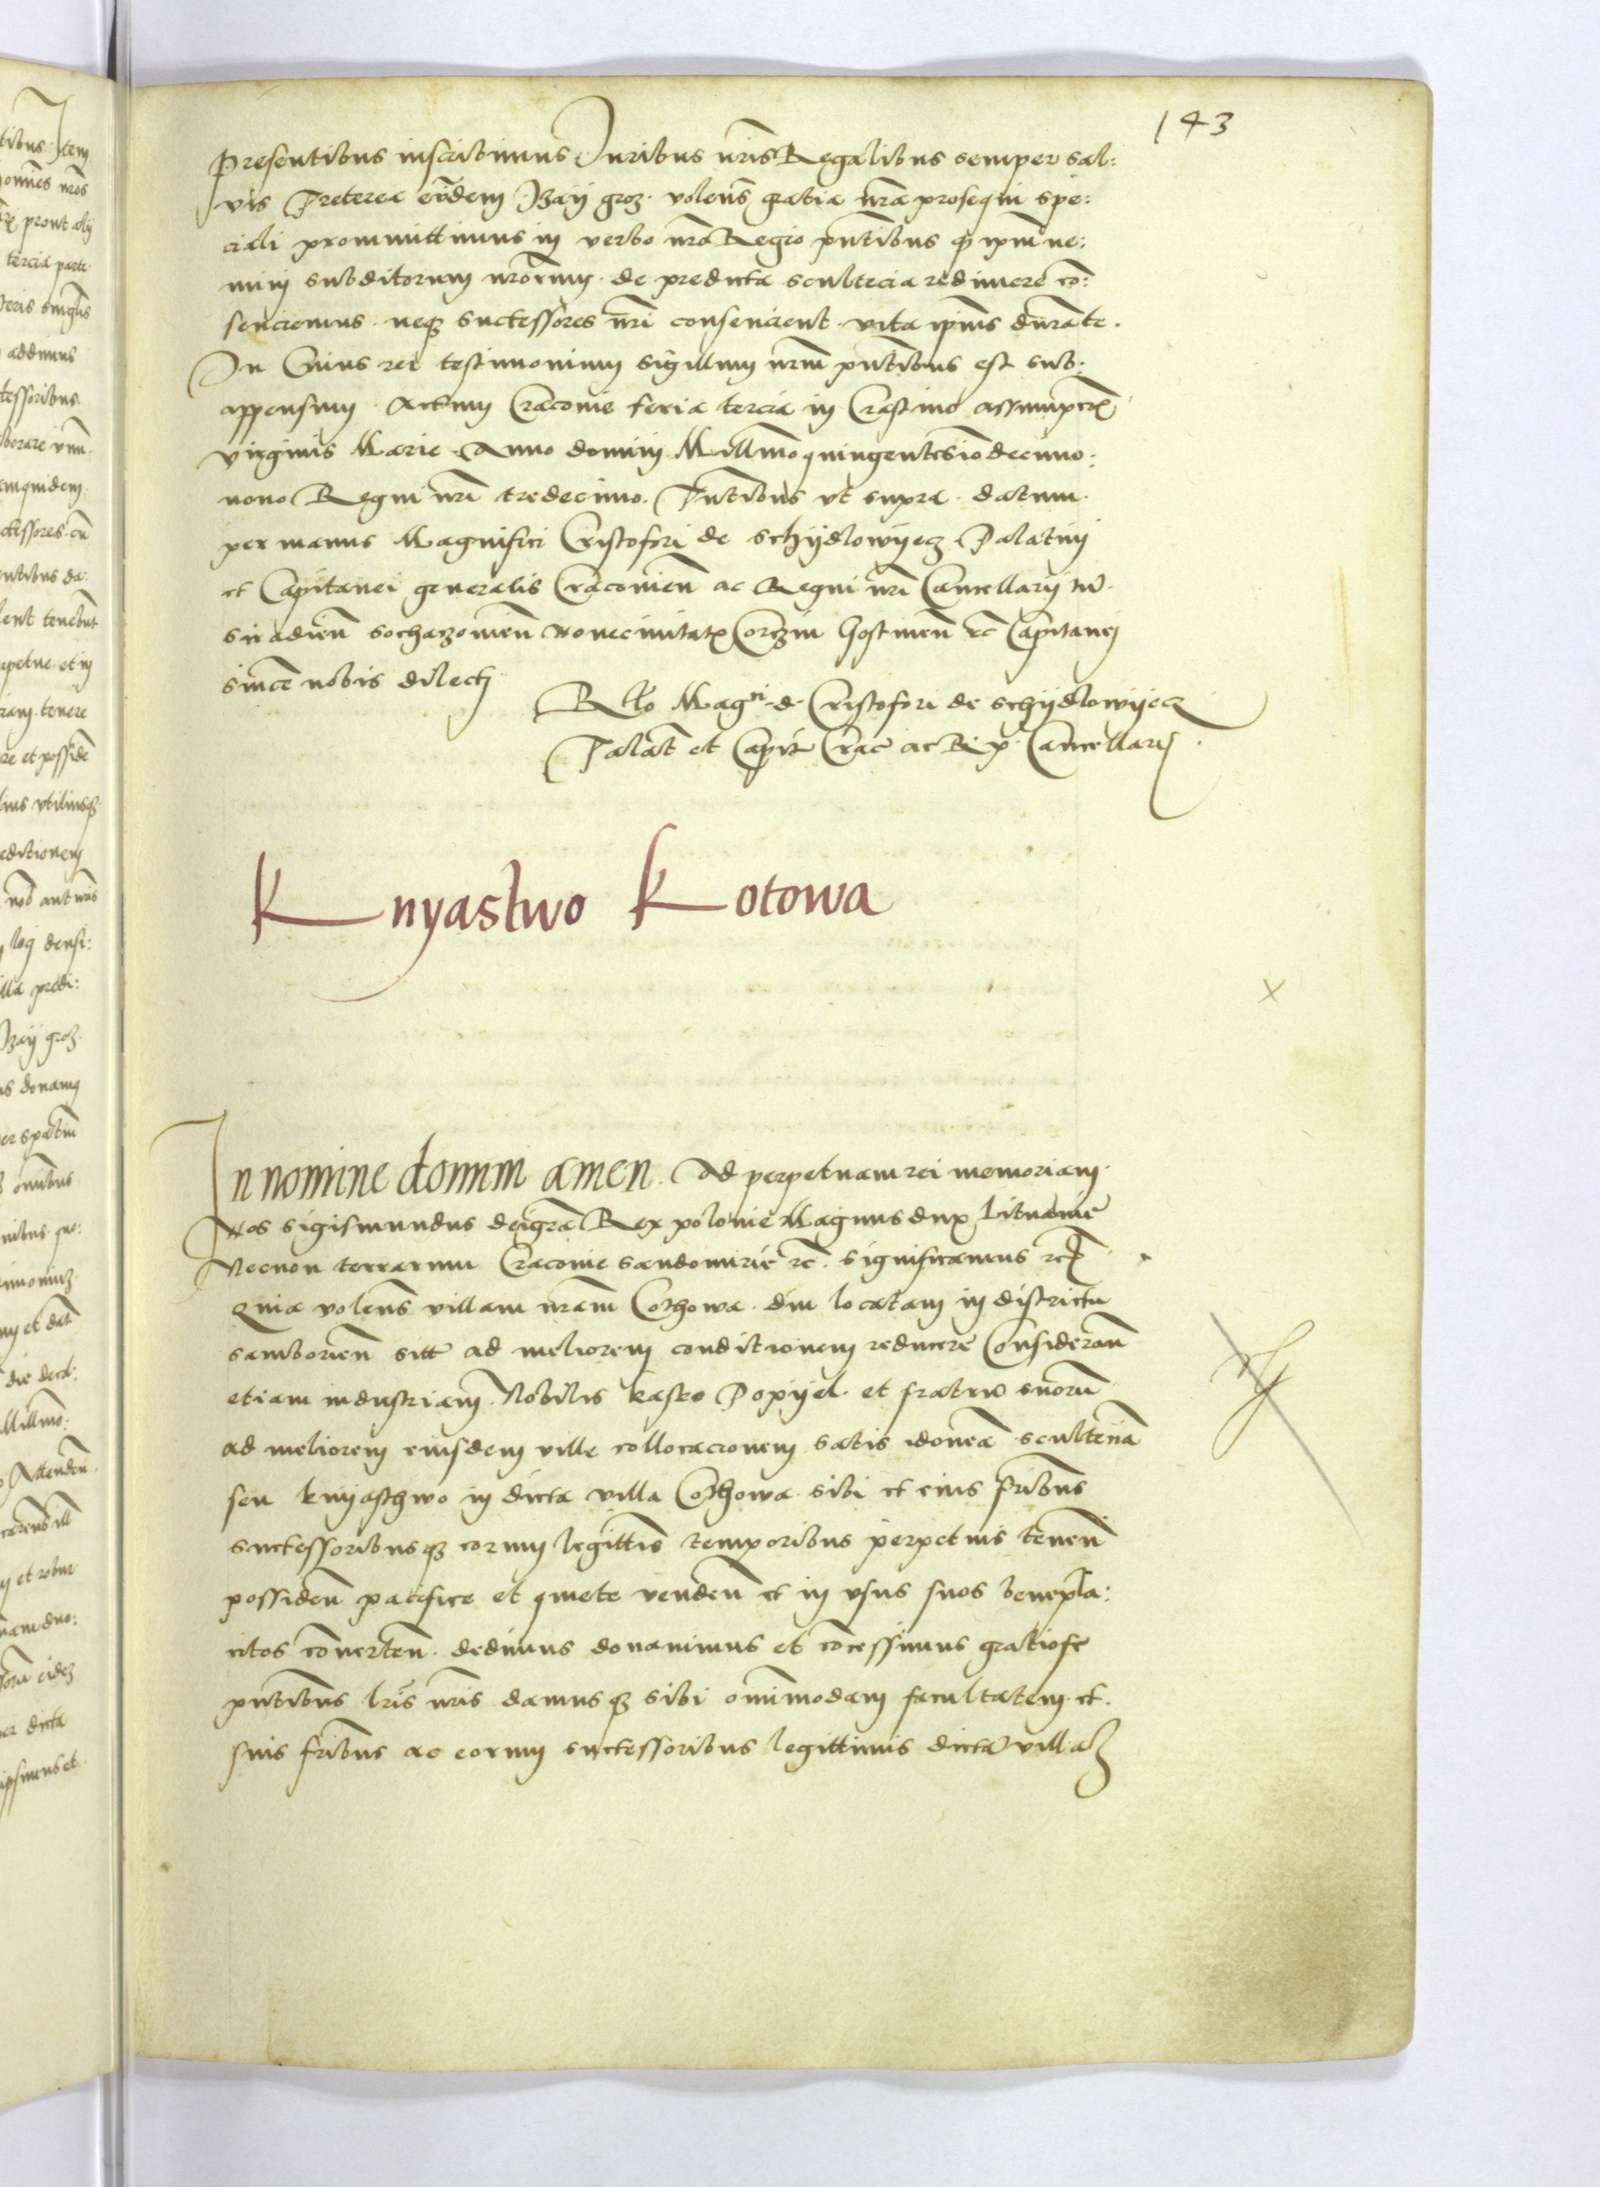 143
presentibus inscribimus Juribus nris Regalibus semper sal:
vis Preterea eundem Bay groz. volens gratia nra prosequi spe:
ciali promittimus in verbo nro Regio pntibus q ipm ne:
mini subditorum nrorum. de predicta scultecia redimere co:
senciemus. neqz successores nri consencient. vita ipius durate.
In Cuius rei testimonium sigillum nrm pntibus est sub:
appensum. Actum Cracovie feria tercia in Crastino assumpcois
virginis Marie. Anno domini Millmo quingentesio decimo:
nono Regni nri tredecimo. Pntibus ut supra. datum.
per manus Magnifici Cristofori de schydlowyecz Palatini
et Capitanei generalis Cracovien ac Regni nri Cancellarij
siradien sochazovien novecivitatis Corczin Gostinen etc Capitanei
since nobis dilecti
Rlo Magci d. Cristofori de schydlowyecz
Palat et Capit Crac ac R. p. Cancellarij
Knyastwo Kotowa
In nomine domini amen. Ad perpetuam rei memoriam.
Nos sigismundus dei gra Rex polonie Magnus dux Lituanie
Necnon terrarum Cracovie sandomirie etc. significamus etc
Quia volens villam nram Cothowa. diu locatam in districtu
samborien sitt ad meliorem conditionem reducere Consideran
etiam industriam. Nobilis kasko Popyel. et fratru suoru
ad meliorem eiusdem ville collocacionem satis idonea scultecia
seu knyasthwo in dicta villa Cothowa. sibi et eius fribus
successoribusqz eorum legittis temporibus perpetuis tenen
possiden pacifice et quiete venden et in usus suos benepla:
citos converten. dedimus donavimus et concessimus gratiose
pntibus lris nris damusqz sibi omimodam facultatem et.
suis fribus ac eorum successoribus legittimis dicta villa